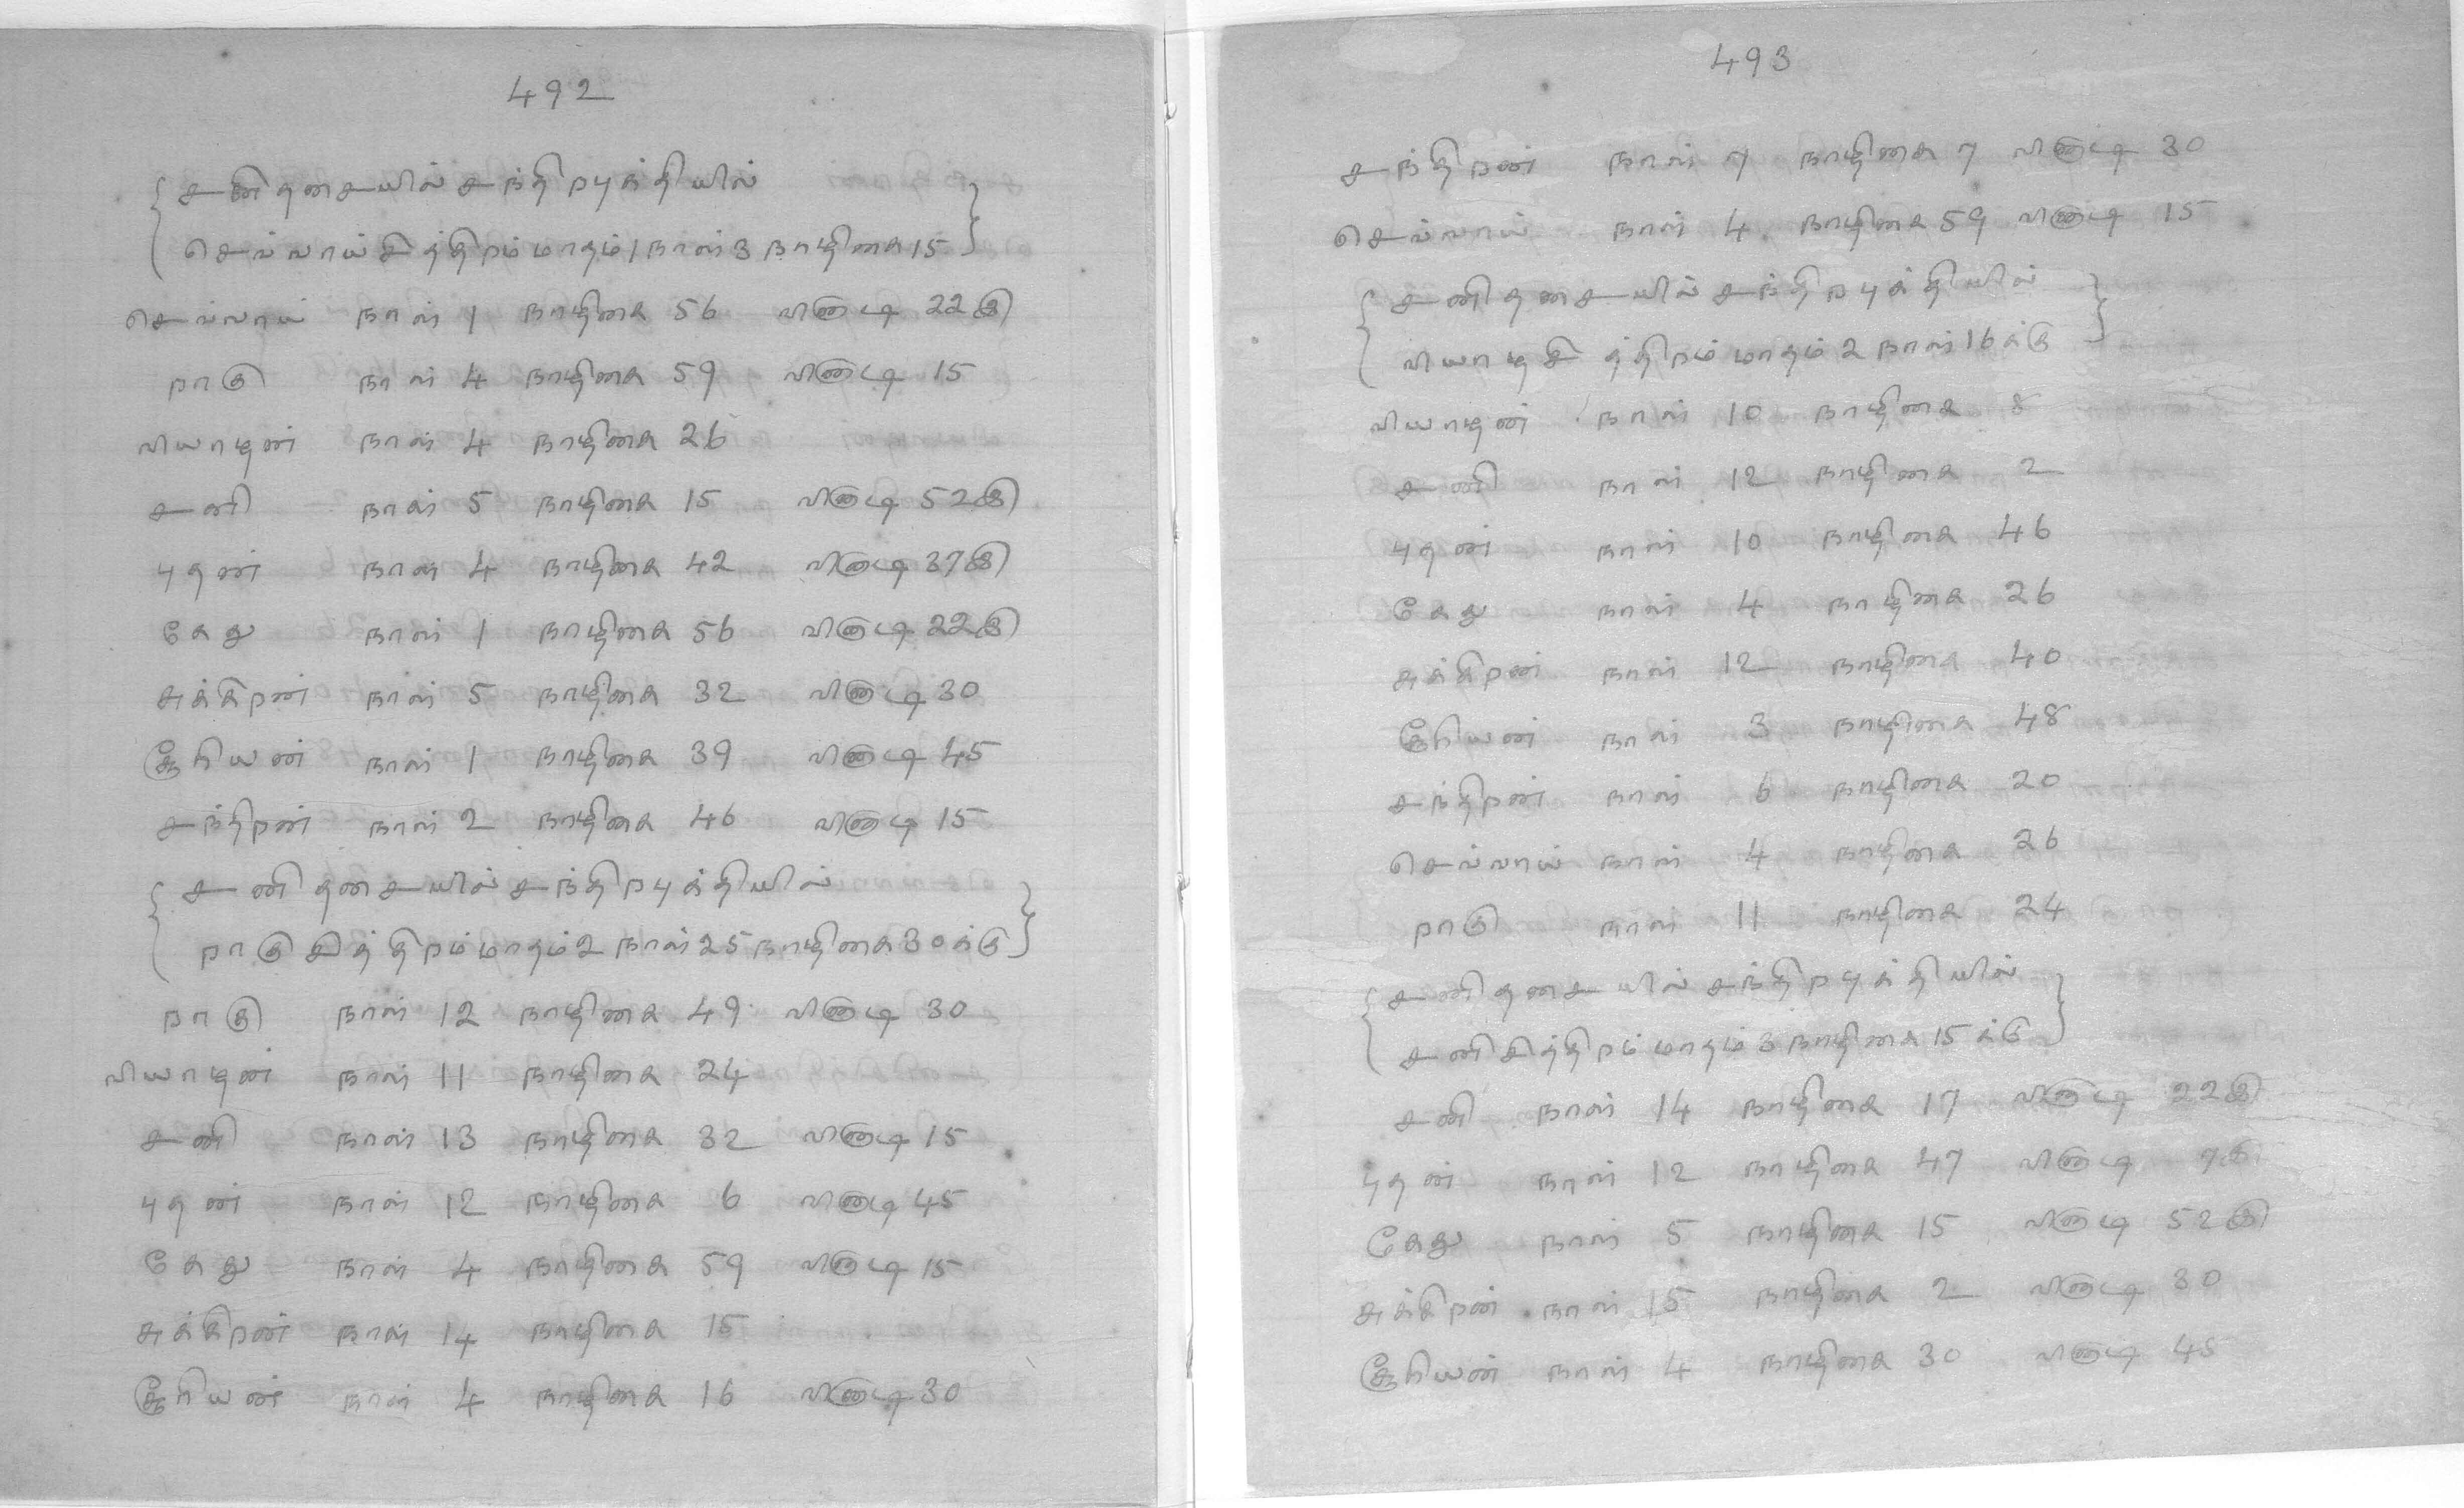 492
சனிதசையில் சந்திரபுக்தியில்
செவ்வாய் சித்திரம் மாதம் 1 நாள் 3 நாழிகை 15
செவ்வாய் நாள் 1 நாழிகை 56 விநாடி 22இ
ராகு நாள் 4 நாழிகை 59 விநாடி 15
வியாழன் நாள் 4 நாழிகை 26
சனி நாள் 5 நாழிகை 15 விநாடி 52இ
புதன் நாள் 4 நாழிகை 42 விநாடி 37இ
கேது நாள் 1 நாழிகை 56 விநாடி 22இ
சுக்கிரன் நாள் 5 நாழிகை 32 விநாடி 30
சூரியன் நாள் 1 நாழிகை 39 விநாடி 45
சந்திரன் நாள் 2 நாழிகை 46 விநாடி 15
சனி தசையில் சந்திரபுக்தியில்
ராகு சித்திரம் மாதம் 2 நாள் 25 நாழிகை 30க்கு
ராகு நாள் 12 நாழிகை 49 விநாடி 30
வியாழன் நாள் 11 நாழிகை 24
சனி நாள் 13 நாழிகை 32 விநாடி 15
புதன் நாள் 12 நாழிகை 6 விநாடி 45
கேது நாள் 4 நாழிகை 59 விநாடி 15
சுக்கிரன் நாள் 14 நாழிகை 15
சூரியன் நாள் 4 நாழிகை 16 விநாடி 30
493
சந்திரன் நாள் 7 நாழிகை 7 விநாடி 30
செவ்வாய் நாள் 4 நாழிகை 59 விநாடி 15
சனிதசையில் சந்திரபுக்தியில்
வியாழசித்திரம் மாதம் 2 நாள் 16க்கு
வியாழன் நாள் 10 நாழிகை 8
சனி நாள் 12 நாழிகை 2
புதன் நாள் 10 நாழிகை 46
கேது நாள் 4 நாழிகை 26
சுக்கிரன் நாள் 12 நாழிகை 40
சூரியன் நாள் 3 நாழிகை 48
சந்திரன் நாள் 6 நாழிகை 20
செவ்வாய் நாள் 4 நாழிகை 26
ராகு நாள் 11 நாழிகை 24
சனிதசையில் சந்திரபுக்தியில்
சனிசித்திரம் மாதம் 3 நாழிகை 15க்கு
சனி நாள் 14 நாழிகை 17 விநாடி 22இ
புதன் நாள் 12 நாழிகை 47 விநாடி 7இ
கேது நாள் 5 நாழிகை 15 விநாடி 52இ
சுக்கிரன் நாள் 15 நாழிகை 2 விநாடி 30
சூரியன் நாள் 4 நாழிகை 30 விநாடி 45